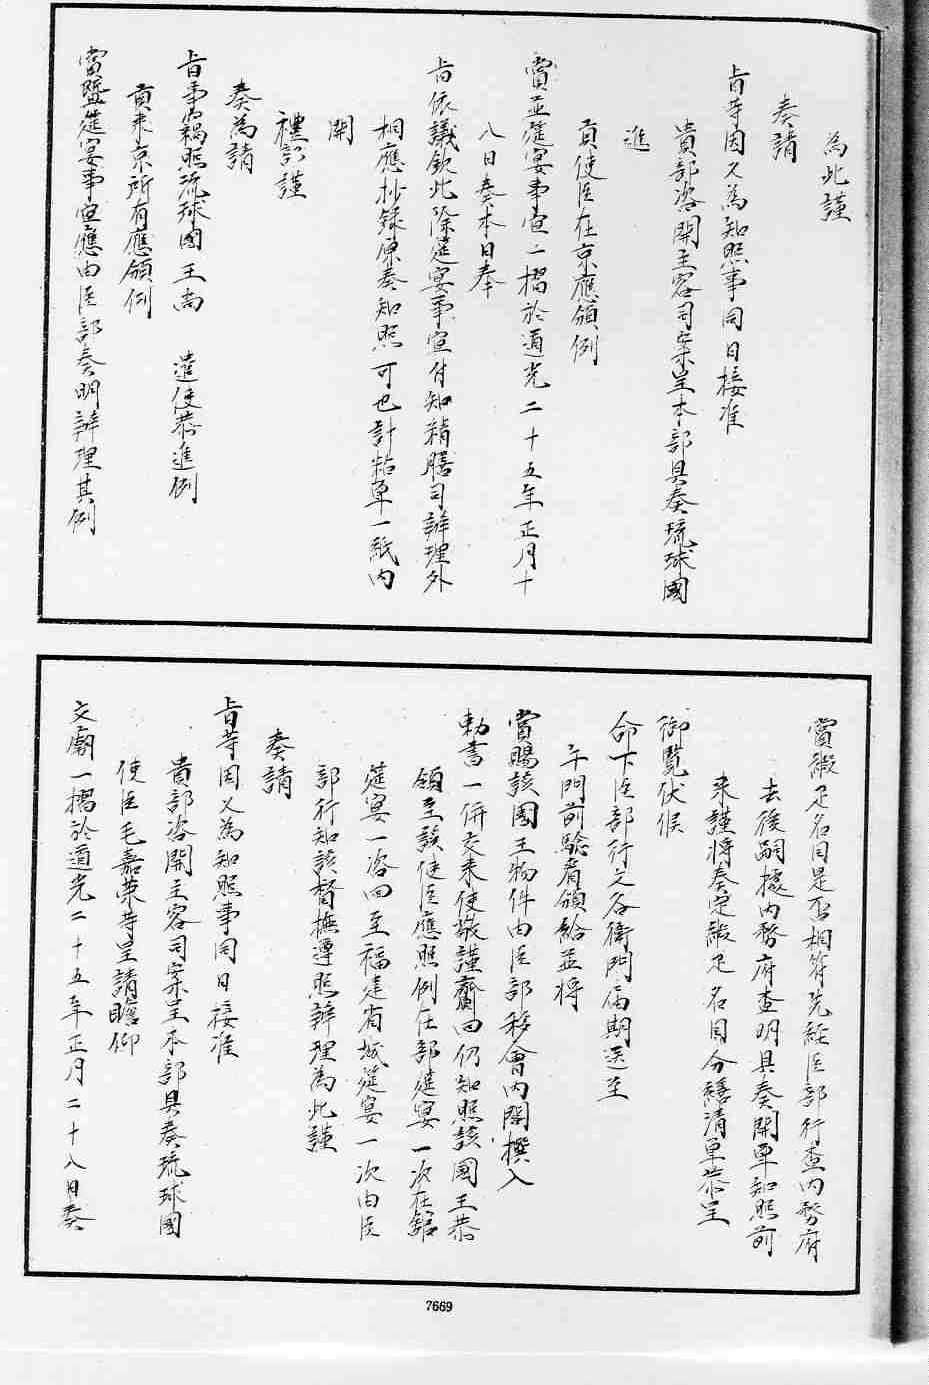 為此謹
奏請
旨等因又為知照事同日接准
貴部咨開主客司案呈本部具奏琉球國
進
貢使臣在京應頒例
賞並筵宴事宜一摺於道光二十五年正月十
八日奏本日奉
旨依議欽此除筵宴事宜付知精膳司辦理外
相應抄錄原奏知照可也計粘單一紙內
開
禮部謹
奏為請
旨事竊照琉球國王尚 遣使恭進例
貢來京所有應頒例
賞暨筵宴事宜應由臣部奏明辦理其例
賞緞疋名目是否相符先經臣部行查內務府
去後嗣據內務府查明具奏開單知照前
來謹將奏定緞疋名目分繕清單恭呈
御覽伏候
命下臣部行文各衙門屆期送至
午門前驗看頒給並將
賞賜該國王物件由臣部移會內閣撰入
勅書一併交來使敬謹齎回仍知照該國王恭
領至該使臣應照例在部筵宴一次在館
筵宴一次回至福建省城筵宴一次由臣
部行知該督撫遵照辦理為此謹
奏請
旨等因又為知照事同日接准
貴部咨開主客司案呈本部具奏琉球國
使臣毛嘉榮等呈請瞻仰
文廟一摺於道光二十五年正月二十八日奏
7669